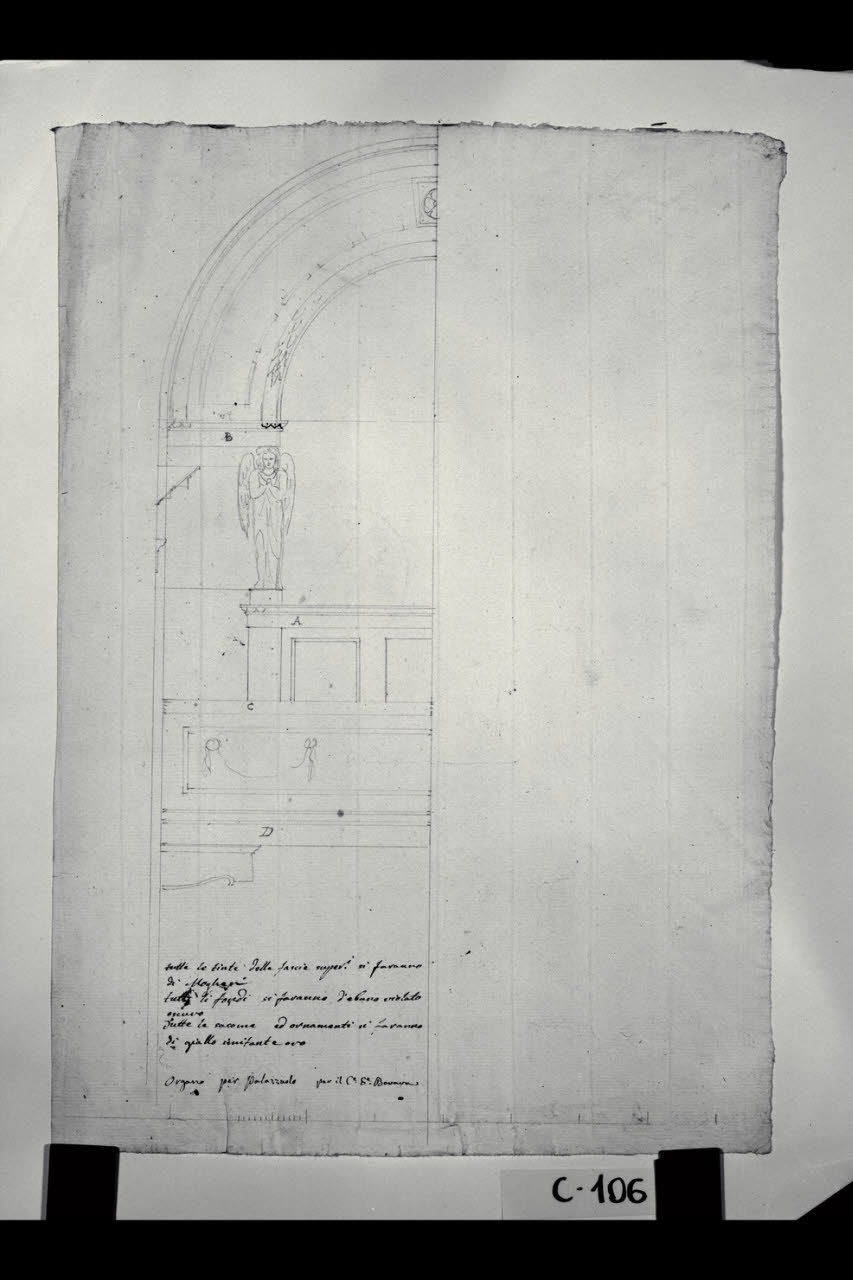 B
A
C
D
tutte le tinte delle fascie super.i si faranno
di
tutti li fondi si faranno d'ebano violato
oscuro
Tutte le sacome ed ornamenti si faranno
di giallo imitante oro
Organo per Palazzuolo per il C. S.
C-106